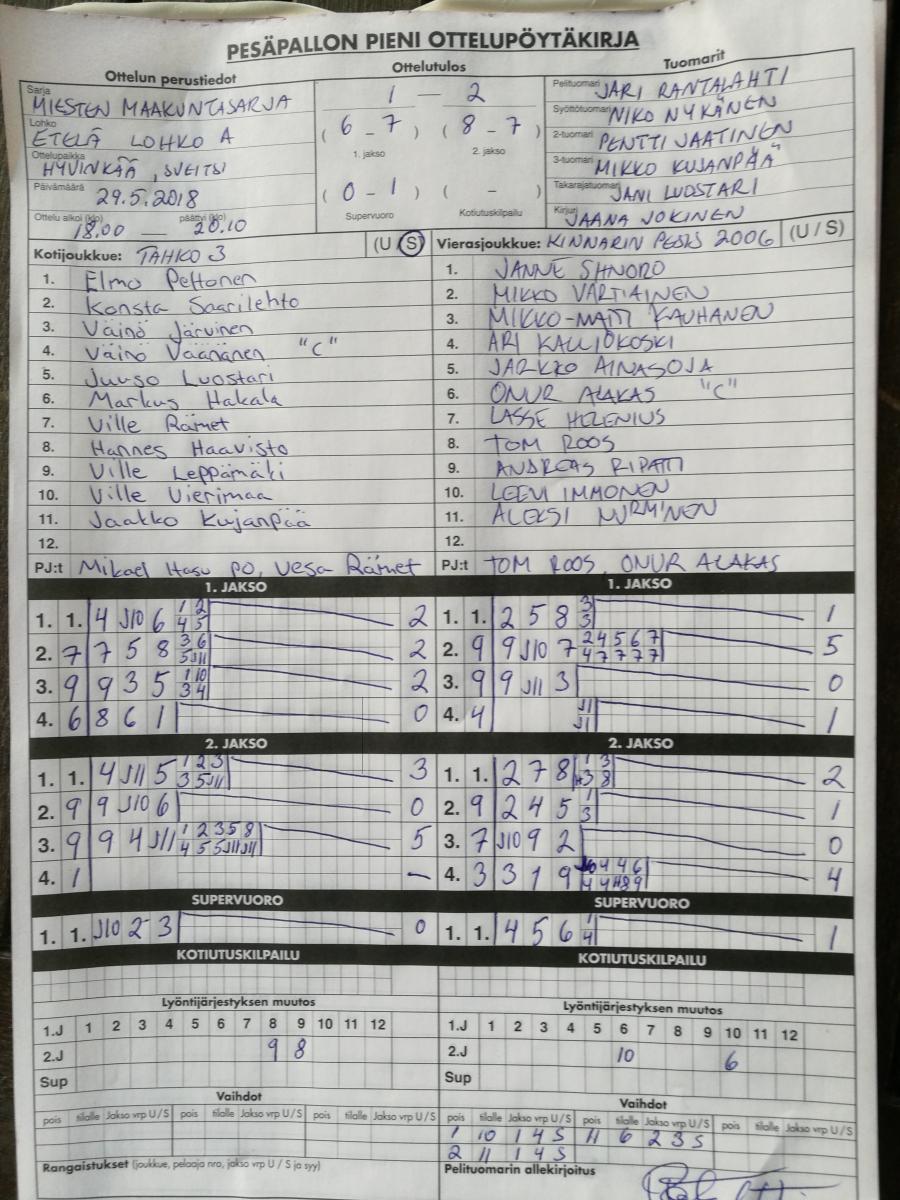 PESÄPALLON PIENI OTTELUPÖYTÄKIRJA
Ottelun perustiedot Ottelutulos Tuomarit
Sarja MIESTEN MAAKUNTASARJA
Lohko ETELÄ LOHKO A
Ottelupaikka HYVINKÄÄ, SVEITSI
Päivämäärä 29.5.2018
Ottelu alkoi (klo) 18.00 — päättyi (klo) 20.10
1 — 2
(6 - 7) (8 - 7)
1. jakso 2. jakso
(0 - 1) ( - )
Supervuoro Kotiutuskilpailu
Pelituomari JARI RANTALAHTI
Syöttötuomari NIKO NYKÄNEN
2-tuomari PENTTI JAATINEN
3-tuomari MIKKO KUJANPÄÄ
Takarajatuomari JANI LUOSTARI
Kirjuri JAANA JOKINEN
Kotijoukkue: TAHKO 3 (U S)
1. Elmo Peltonen
2. Konsta Saarilehto
3. Väinö Järvinen
4. Väinö Väänänen "C"
5. Juuso Luostari
6. Markus Hakala
7. Ville Rämet
8. Hannes Haavisto
9. Ville Leppämäki
10. Ville Vierimaa
11. Jaakko Kujanpää
12.
PJ:t Mikael Hasu PO, Vesa Rämet
Vierasjoukkue: KINNARIN PESIS 2006 (U / S)
1. JANNE SHNORO
2. MIKKO VARTIAINEN
3. MIKKO-MATTI KAUHANEN
4. ARI KALLIOKOSKI
5. JARKKO AINASOJA
6. ONUR ALAKAS "C"
7. LASSE HELENIUS
8. TOM ROOS
9. ANDREAS RIPATTI
10. LEEVI IMMONEN
11. ALEKSI NURMINEN
12.
PJ:t TOM ROOS, ONUR ALAKAS
1. JAKSO
1. 1. 4 J10 6 1 2 2
4 5
2. 7 7 5 8 3 6 2
5 J11
3. 9 9 3 5 1 10 2
3 4
4. 6 8 6 1 0
1. JAKSO
1. 1. 2 5 8 3 1
3
2. 9 9 J10 7 2 4 5 6 7 5
4 7 7 7 7
3. 9 9 J11 3 0
4. 4 J1 1
J1
2. JAKSO
1. 1. 4 J11 5 1 2 3 3
3 5 J11
2. 9 9 J10 6 0
3. 9 9 4 J11 1 2 3 5 8 5
4 5 5 J11 J11
4. 1 —
2. JAKSO
1. 1. 2 7 8 1 3 2
3 8
2. 9 2 4 5 1 1
3
3. 7 J10 9 2 0
4. 3 3 1 9 4 4 6 4
SUPERVUORO
1. 1. J10 2 3 0
SUPERVUORO
1. 1. 4 5 6 1 1
4
KOTIUTUSKILPAILU
KOTIUTUSKILPAILU
Lyöntijärjestyksen muutos
1.J 1 2 3 4 5 6 7 8 9 10 11 12
2.J 9 8
Sup
Vaihdot
pois tilalle Jakso vrp U / S pois tilalle Jakso vrp U / S pois tilalle Jakso vrp U / S
Rangaistukset (joukkue, pelaaja nro, jakso vrp U / S ja syy)
Lyöntijärjestyksen muutos
1.J 1 2 3 4 5 6 7 8 9 10 11 12
2.J 10 6
Sup
Vaihdot
pois tilalle Jakso vrp U / S pois tilalle Jakso vrp U / S pois tilalle Jakso vrp U / S
1 10 1 4 S 11 6 2 3 S
2 11 1 4 S
Pelituomarin allekirjoitus